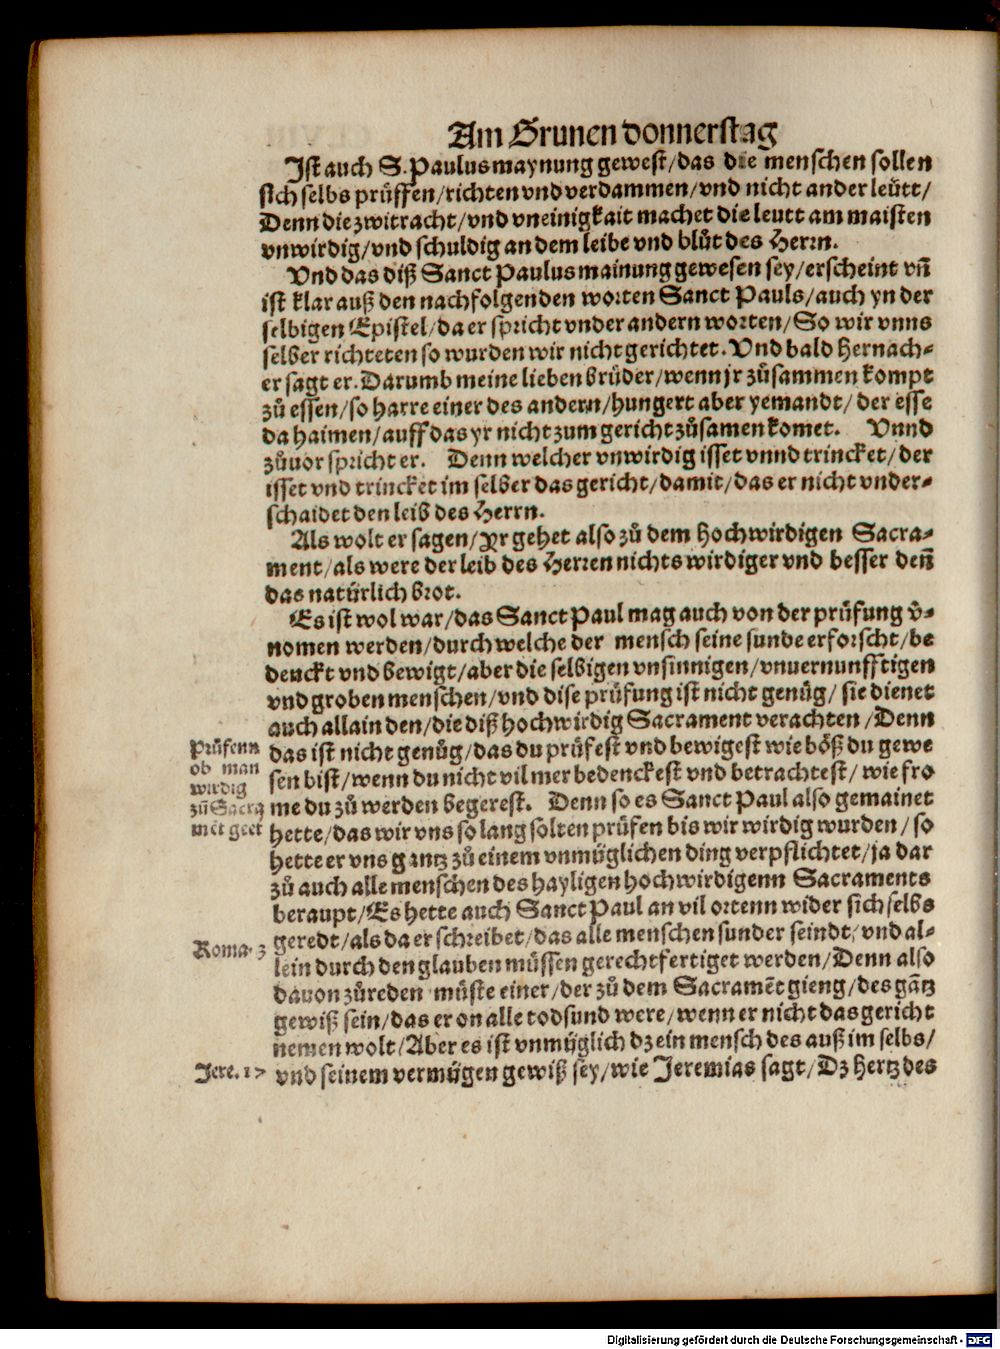 Am Grunen donnerstag
Ist auch S. Paulus maynung gewest/das die menschen sollen
sich selbs prüffen/richten vnd verdammen/vnd nicht ander leütt/
Denn die zwitracht/vnd vneinigkait machet die leutt am maisten
vnwirdig/vnd schuldig an dem leibe vnd blůt des Herrn.
Vnd das diß Sanct Paulus mainung gewesen sey/erscheint vñ
ist klar auß den nachfolgenden worten Sanct Pauls/auch yn der
selbigen Epistel/da er spricht vnder andern worten/So wir vnns
selber richteten so wurden wir nicht gerichtet. Vnd bald hernach-
er sagt er. Darumb meine lieben brüder/wenn jr zůsammen kompt
zů essen/so harre einer des andern/hungert aber yemandt/der esse
da haimen/auff das yr nicht zum gericht zůsamen komet. Vnnd
zůuor spricht er. Denn welcher vnwirdig isset vnnd trincket/der
isset vnd trincket im selber das gericht/damit/das er nicht vnder-
schaidet den leib des Herrn.
Als wolt er sagen/Yr gehet also zů dem hochwirdigen Sacra-
ment/als were der leib des Herren nichts wirdiger vnd besser deñ
das natürlich brot.
Es ist wol war/das Sanct Paul mag auch von der prüfung v̂-
nomen werden/durch welche der mensch seine sunde erforscht/be
denckt vnd bewigt/aber die selbigen vnsinnigen/vnuernunfftigen
vnd groben menschen/vnd dise prüfung ist nicht genůg/sie dienet
auch allain den/die diß hochwirdig Sacrament verachten/Denn
Prüfenn
ob man
wirdig
zů Sacra
mēt geet
das ist nicht genůg/das du prüfest vnd bewigest wie böß du gewe
sen bist/wenn du nicht vil mer bedenckest vnd betrachtest/wie fro
me du zů werden begerest. Denn so es Sanct Paul also gemainet
hette/das wir vns so lang solten prüfen bis wir wirdig wurden/so
hette er vns gantz zů einem vnmüglichen ding verpflichtet/ja dar
zů auch alle menschen des hayligen hochwirdigenn Sacraments
beraupt/Es hette auch Sanct Paul an vil ortenn wider sich selbs
Roma. 3
geredt/als da er schreibet/das alle menschen sunder seindt/vnd al-
lein durch den glauben müssen gerechtfertiget werden/Denn also
dauon zůreden müste einer/der zů dem Sacramēt gieng/des gātz
gewiß sein/das er on alle todsund were/wenn er nicht das gericht
nemen wolt/Aber es ist vnmüglich dz ein mensch des auß im selbs/
Jere. 17
vnd seinem vermügen gewiß sey/wie Jeremias sagt/Dz hertz des
Digitalisierung gefördert durch die Deutsche Forschungsgemeinschaft - DFG